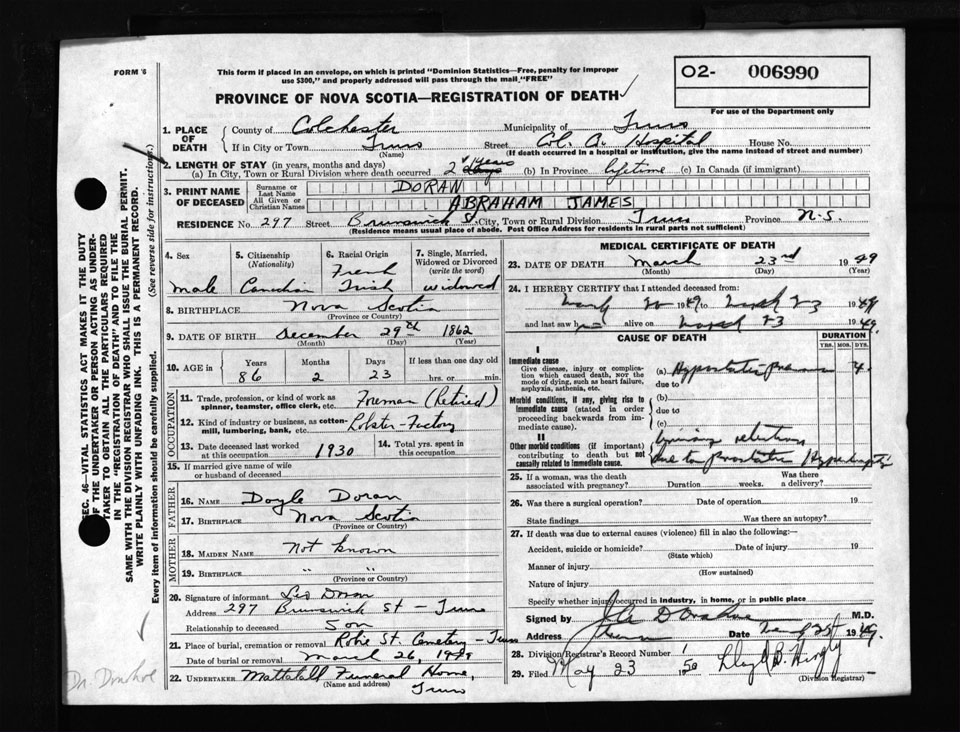 FORM 6
This form if placed in an envelope, on which is printed "Dominion Statistics—Free, penalty for improper
use $300," and properly addressed will pass through the mail, "FREE"
O2- 006990
For use of the Department only
PROVINCE OF NOVA SCOTIA—REGISTRATION OF DEATH
1. PLACE OF DEATH
County of Colchester Municipality of Truro
If in City or Town Truro Street Col. A. Hospital House No.
(Name) (If death occurred in a hospital or institution, give the name instead of street and number)
2. LENGTH OF STAY (in years, months and days)
(a) In City, Town or Rural Division where death occurred 2 years days (b) In Province lifetime (c) In Canada (if immigrant)
3. PRINT NAME OF DECEASED
Surname or Last Name DORAN
All Given or Christian Names ABRAHAM JAMES
RESIDENCE No. 297 Street Brunswick St. City, Town or Rural Division Truro Province N.S.
(Residence means usual place of abode. Post Office Address for residents in rural parts not sufficient)
4. Sex male
5. Citizenship (Nationality) Canadian
6. Racial Origin French Irish
7. Single, Married, Widowed or Divorced (write the word) widowed
8. BIRTHPLACE Nova Scotia
(Province or Country)
9. DATE OF BIRTH December 29th 1862
(Month) (Day) (Year)
10. AGE in Years Months Days If less than one day old
86 2 23 hrs. or min.
OCCUPATION
11. Trade, profession, or kind of work as spinner, teamster, office clerk, etc. Foreman (Retired)
12. Kind of industry or business, as cotton-mill, lumbering, bank, etc. Lobster-Factory
13. Date deceased last worked at this occupation 1930
14. Total yrs. spent in this occupation
15. If married give name of wife or husband of deceased
FATHER
16. NAME Doyle Doran
17. BIRTHPLACE Nova Scotia
(Province or Country)
MOTHER
18. MAIDEN NAME Not known
19. BIRTHPLACE " "
(Province or Country)
20. Signature of informant Doran
Address 297 Brunswick St - Truro
Relationship to deceased Son
21. Place of burial, cremation or removal Robie St. Cemetery - Truro
Date of burial or removal March 26, 1949
22. UNDERTAKER Mattatall Funeral Home,
(Name and address) Truro
MEDICAL CERTIFICATE OF DEATH
23. DATE OF DEATH March 23rd 1949
(Month) (Day) (Year)
24. I HEREBY CERTIFY that I attended deceased from:
1949 to March 23 1949
and last saw h alive on March 23 1949.
CAUSE OF DEATH
DURATION
YRS. MOS. DYS.
I
Immediate cause
Give disease, injury or complication which caused death, NOT the mode of dying, such as heart failure, asphyxia, asthenia, etc.
(a) Hypostatic pneumonia 4
due to
Morbid conditions, if any, giving rise to immediate cause (stated in order proceeding backwards from immediate cause).
(b)
due to
(c)
II
Other morbid conditions (if important) contributing to death but not causally related to immediate cause.
Urinary retention
due to prostatic Hypertrophy
25. If a woman, was the death associated with pregnancy? Duration weeks. Was there a delivery?
26. Was there a surgical operation? Date of operation 19
State findings Was there an autopsy?
27. If death was due to external causes (violence) fill in also the following:—
Accident, suicide or homicide? Date of injury 19
(State which)
Manner of injury
(How sustained)
Nature of injury
Specify whether injury occurred in industry, in home, or in public place
Signed by Donahoe M.D.
Address Truro Date 25th 1949.
28. Division Registrar's Record Number 1
29. Filed May 23 1950 Lloyd B.
(Division Registrar)
SEC. 46—VITAL STATISTICS ACT MAKES IT THE DUTY
OF THE UNDERTAKER OR PERSON ACTING AS UNDER-
TAKER TO OBTAIN ALL THE PARTICULARS REQUIRED
IN THE "REGISTRATION OF DEATH" AND TO FILE THE
SAME WITH THE DIVISION REGISTRAR WHO SHALL ISSUE THE BURIAL PERMIT.
WRITE PLAINLY WITH UNFADING INK. THIS IS A PERMANENT RECORD.
Every item of information should be carefully supplied. (See reverse side for instructions.)
Dr. Donahoe